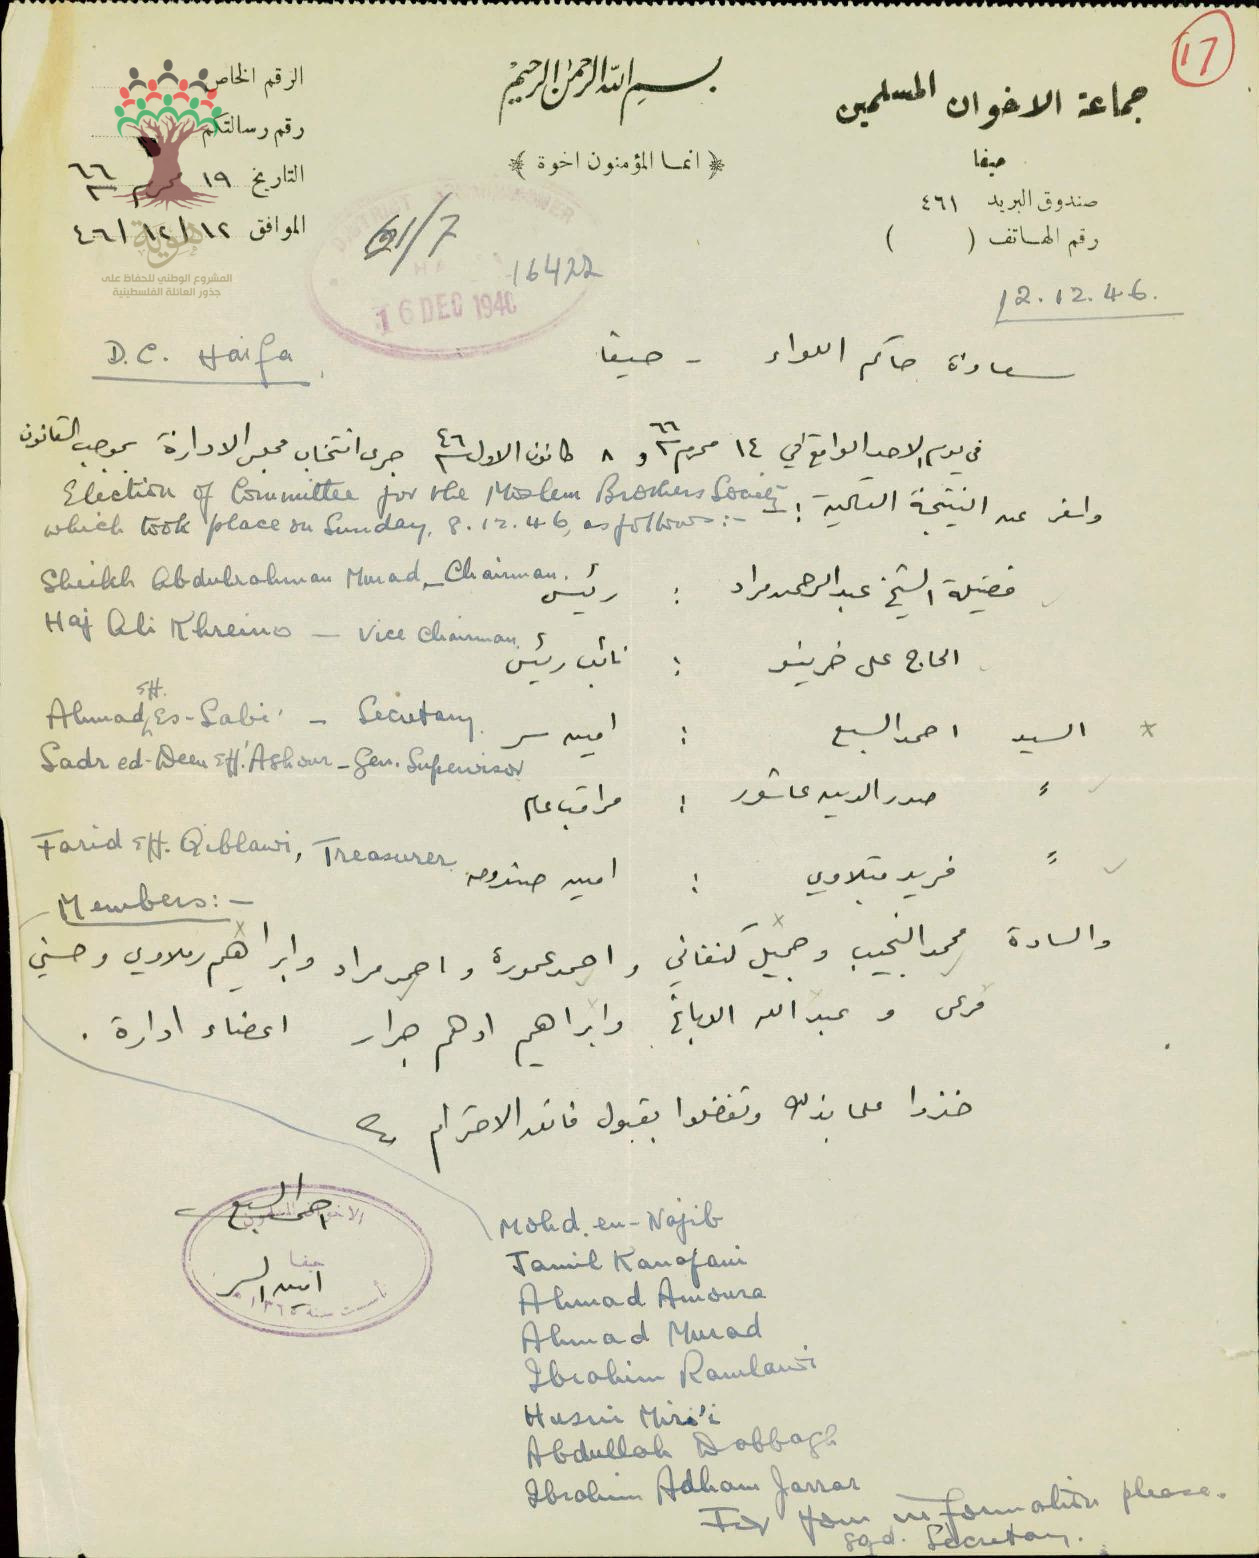 17
جماعة الاخوان المسلمين
حيفا
صندوق البريد ٤٦١
رقم الهاتف ( )
12.12.46.
بسم الله الرحمن الرحيم
﴿ انما المؤمنون اخوة ﴾
61/7
16422
DISTRICT COMMISSIONER
HAIFA
16 DEC 1946
الرقم الخاص
رقم رسالتكم
التاريخ ١٩ محرم ٦٦
الموافق ١٢/١٢/٤٦
هوية
المشروع الوطني للحفاظ على
جذور العائلة الفلسطينية
سعادة حاكم اللواء - حيفا
D.C. Haifa.
في يوم الاحد الواقع في ١٤ محرم ٦٦ و ٨ كانون الاول ٤٦ جرى انتخاب مجلس الادارة بموجب القانون
واسفر عن النتيجة التالية :
Election of Committee for the Moslem Brothers Society
which took place on Sunday, 8.12.46, as follows:-
فضيلة الشيخ عبد الرحمن مراد : رئيس
Sheikh Abdulrahman Murad - Chairman.
الحاج علي خرينو : نائب رئيس
Haj Ali Khreino - Vice Chairman.
السيد احمد السبع : امين سر
Ahmad Eff. Es-Sabi' - Secretary.
" صدر الدين عاشور : مراقب عام
Sadr ed-Deen Eff. 'Ashour - Gen. Supervisor
" فريد قبلاوي : امين صندوق
Farid Eff. Qiblawi, Treasurer.
Members:-
والسادة محمد النجيب وجميل كنفاني واحمد عمورة واحمد مراد وابراهيم رملاوي وحسني
مرعي و عبد الله الدباغ وابراهيم ادهم جرار اعضاء ادارة .
خذوا علما بذلك وتفضلوا بقبول فائق الاحترام
احمد السبع
امين السر
الاخوان المسلمون
حيفا
Mohd. en-Najib
Jamil Kanafani
Ahmad Amoura
Ahmad Murad
Ibrahim Ramlawi
Husni Mir'i
Abdullah Dabbagh
Ibrahim Adham Jarrar
For your information please.
Sgd. Secretary.